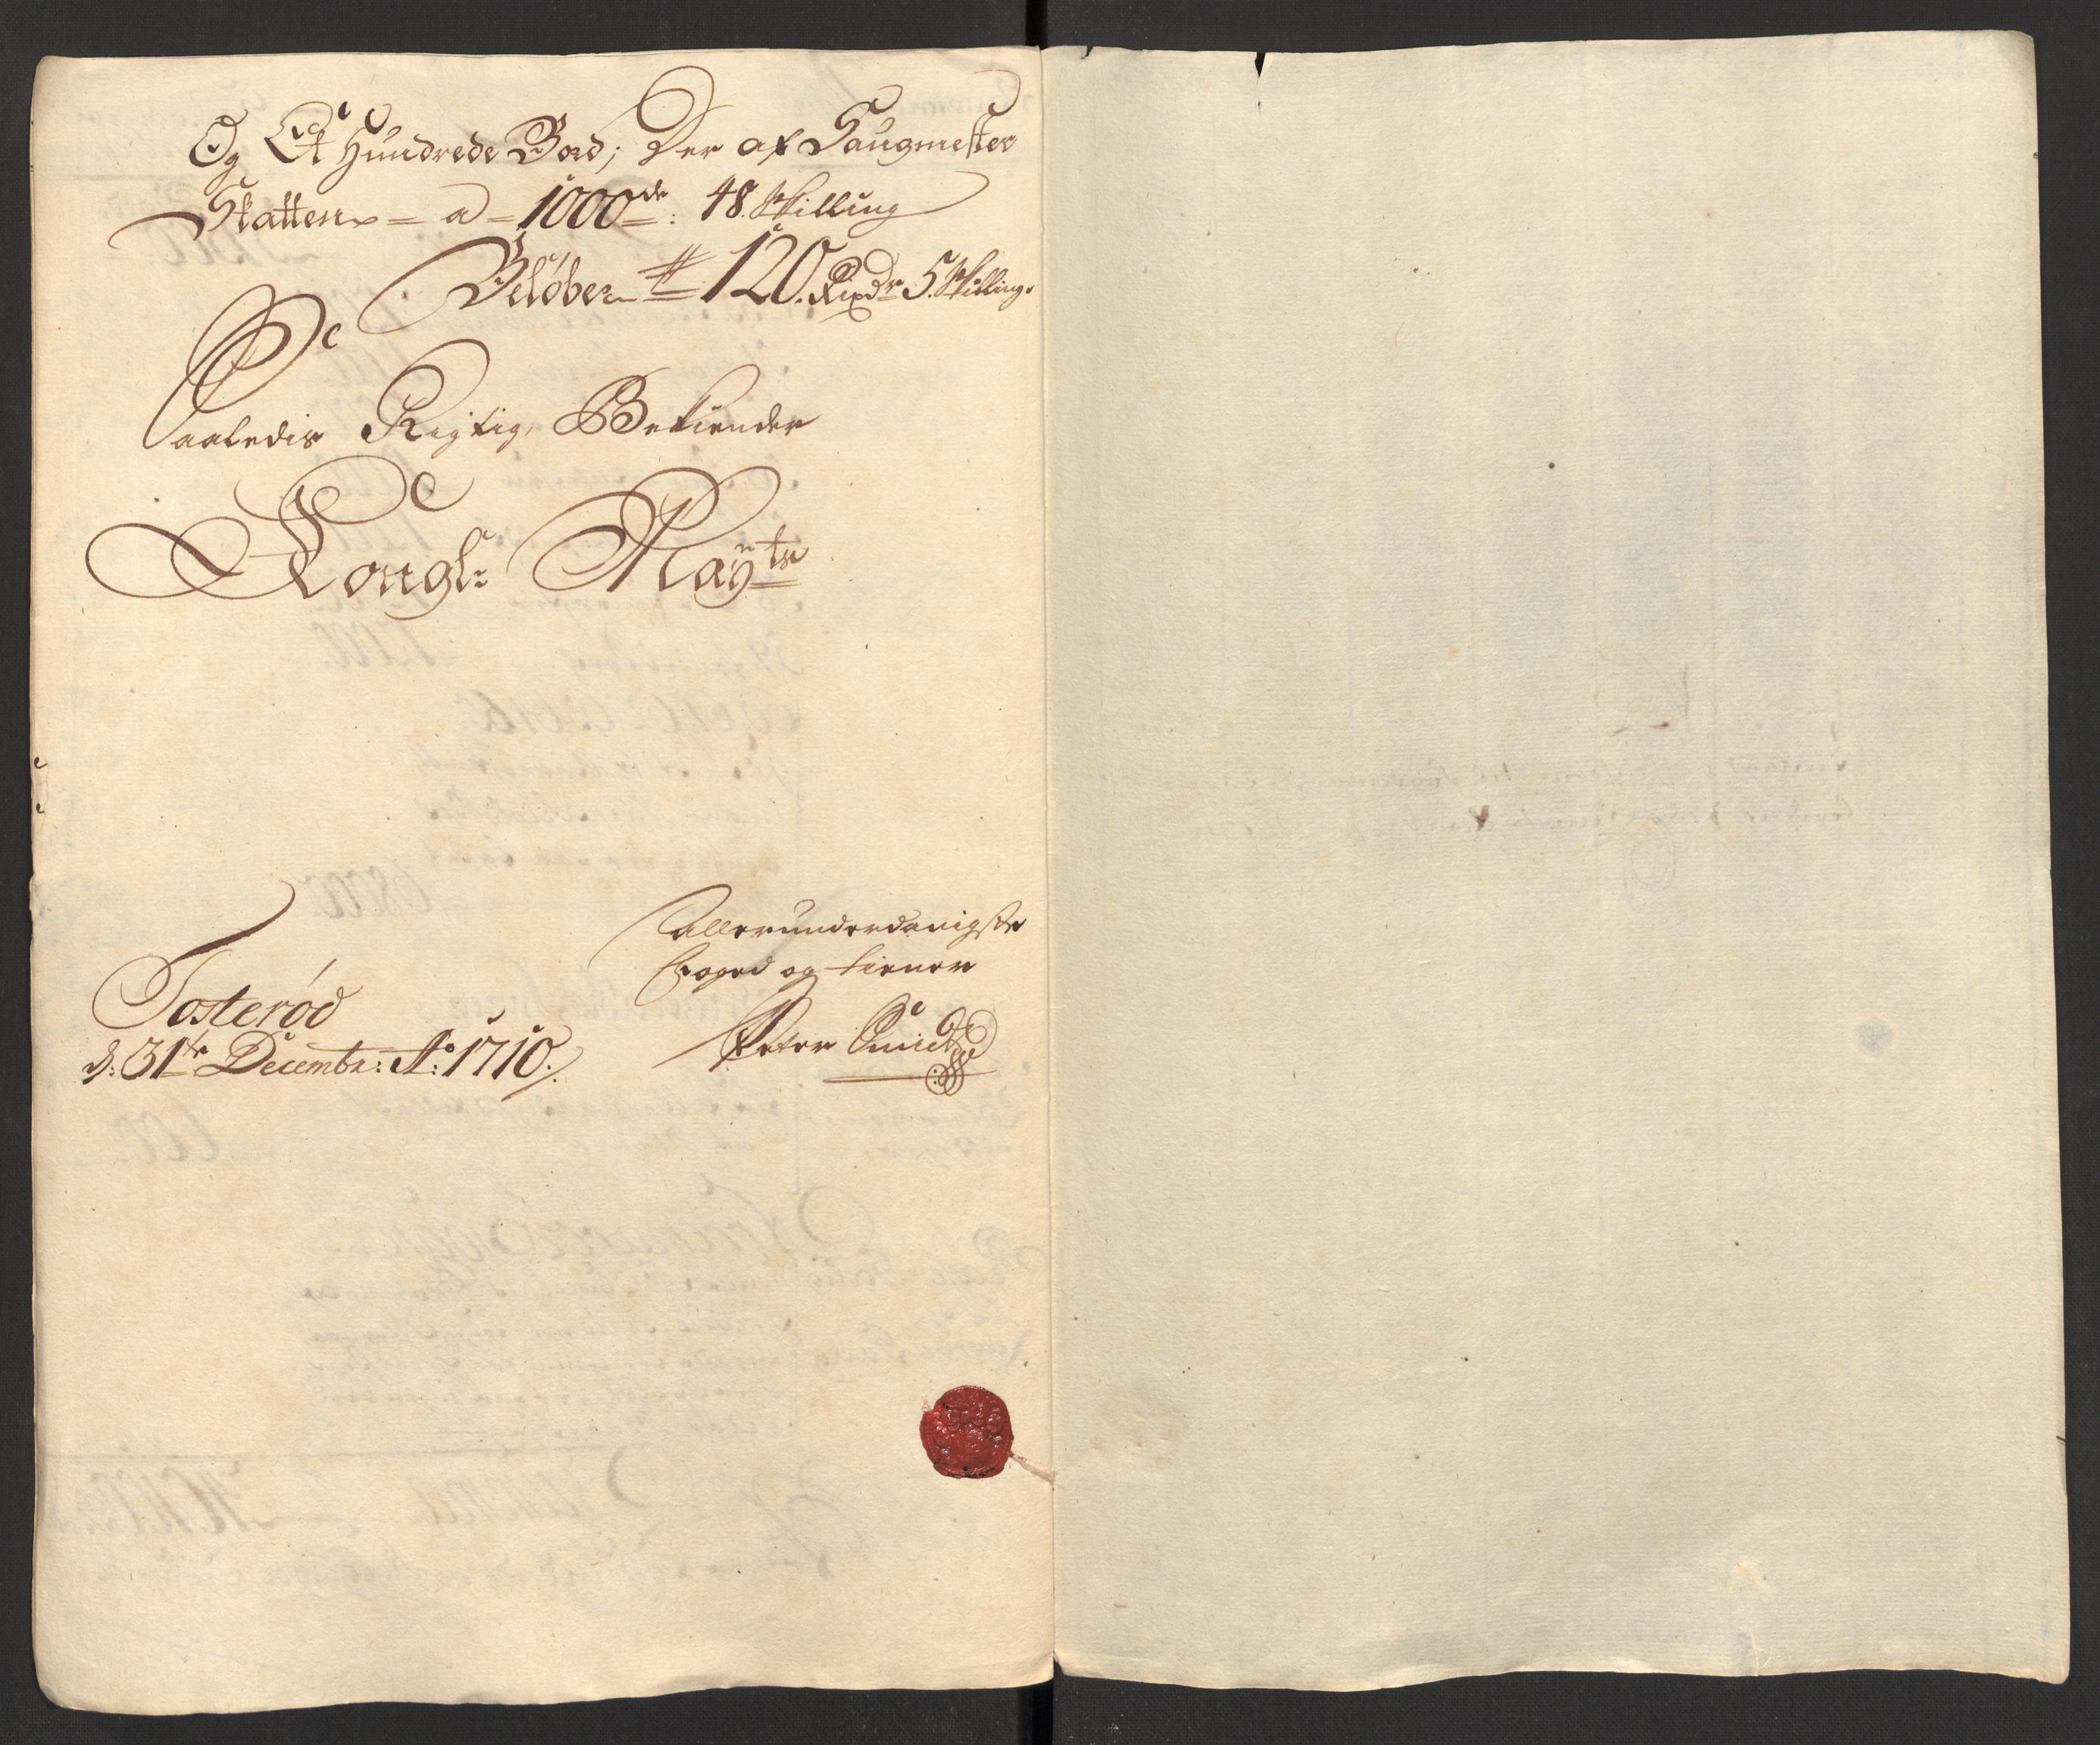 Og Et Hundrede Bord; Der af Saugmester
Skatten = a = 1000de: 48 Skilling
Beløber = 120. Rixdr 5. Skilling.
Saaledis Rigtig, Bekiender
Kongl: Mayts
Allerunderdanigste
foged og tiener
Peter Smidt
Tosterød
d: 31te Decembr: Ao: 1710.